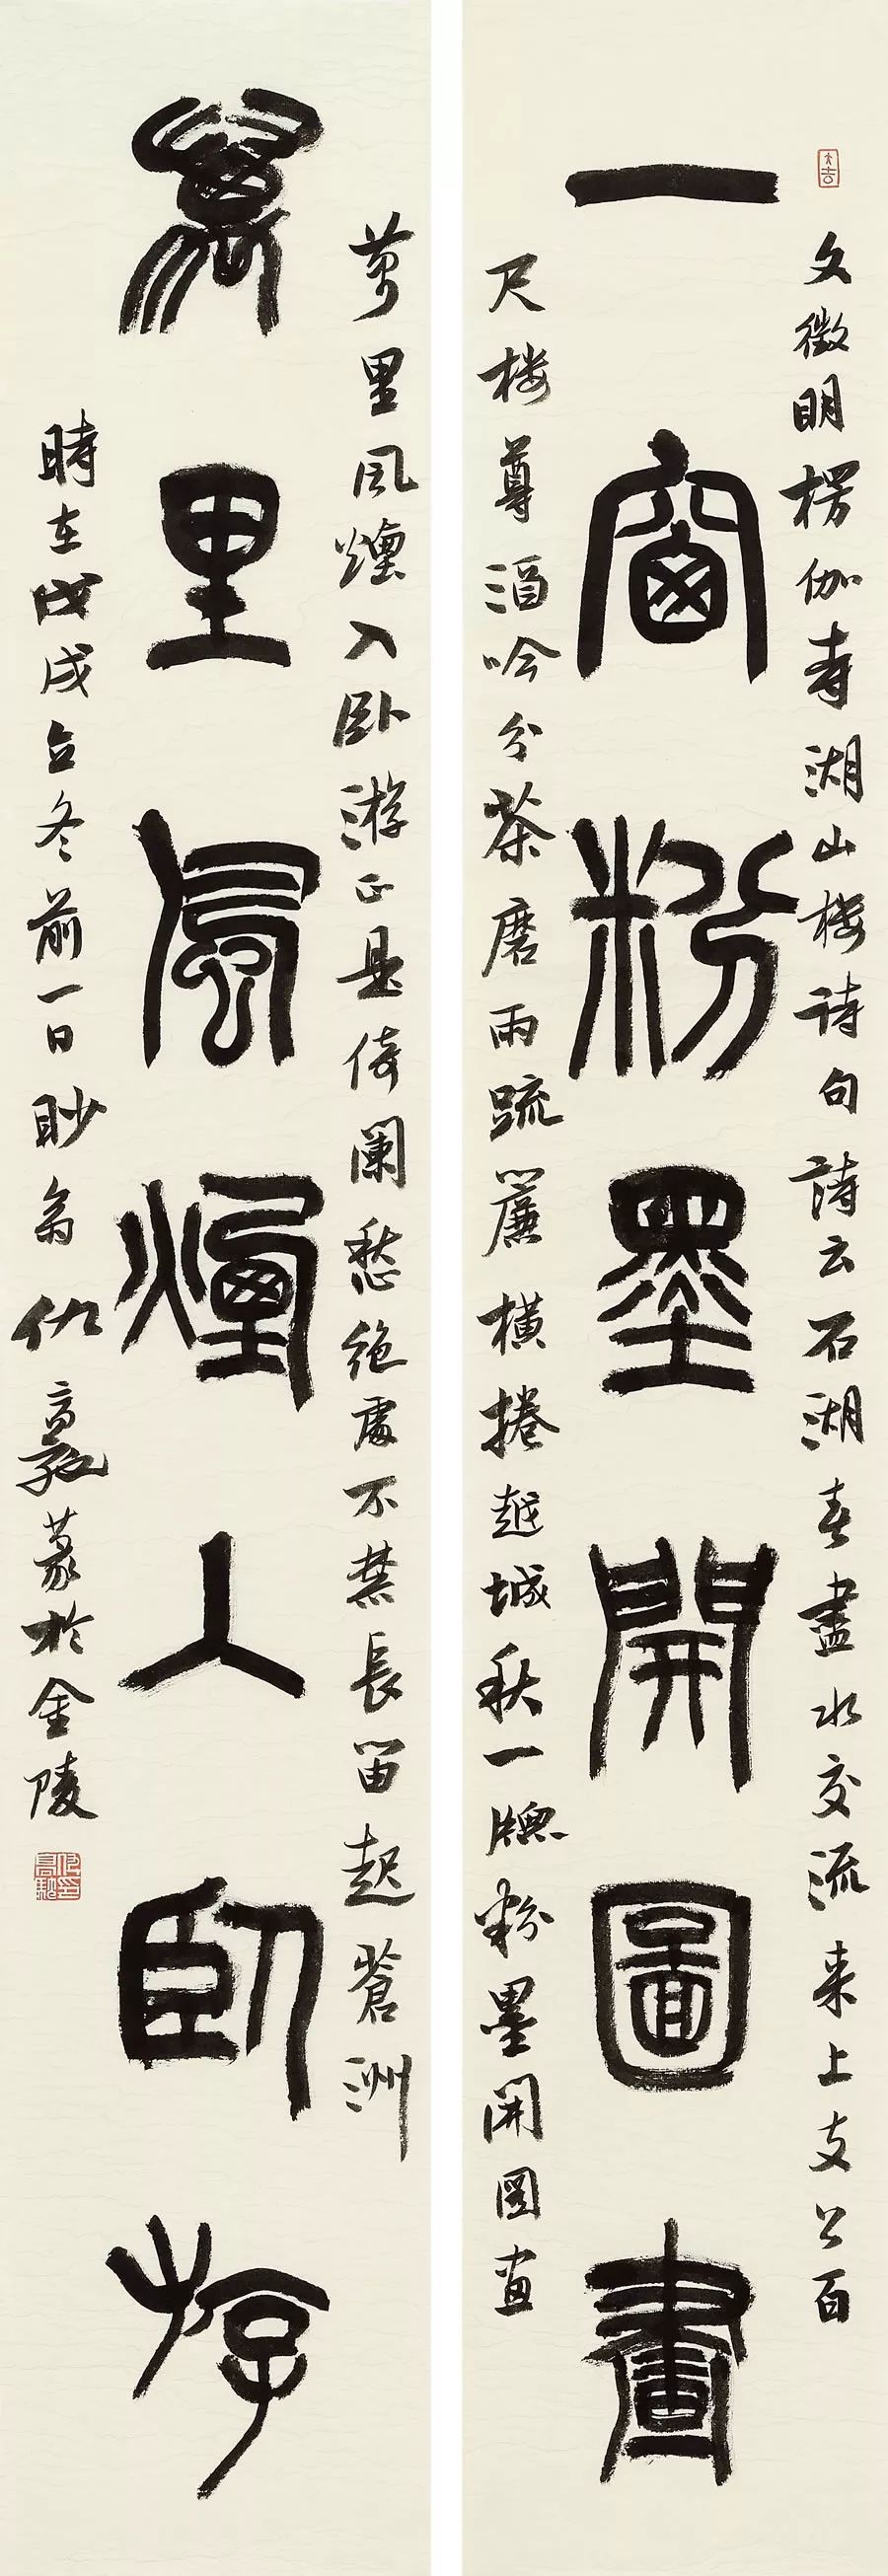 大吉
文徵明楞伽寺湖山楼诗句詩云石湖春盡水交流来上支公百
一窗粉墨開圖畫
尺楼尊酒吟分茶磨雨疏簾橫捲越城秋一牕粉墨開图画
萬里風煙入卧游正是倚闌愁绝處不禁長笛起蒼洲
萬里風煙人卧游
時在戊戌立冬前一日眇翁仇高馳篆於金陵